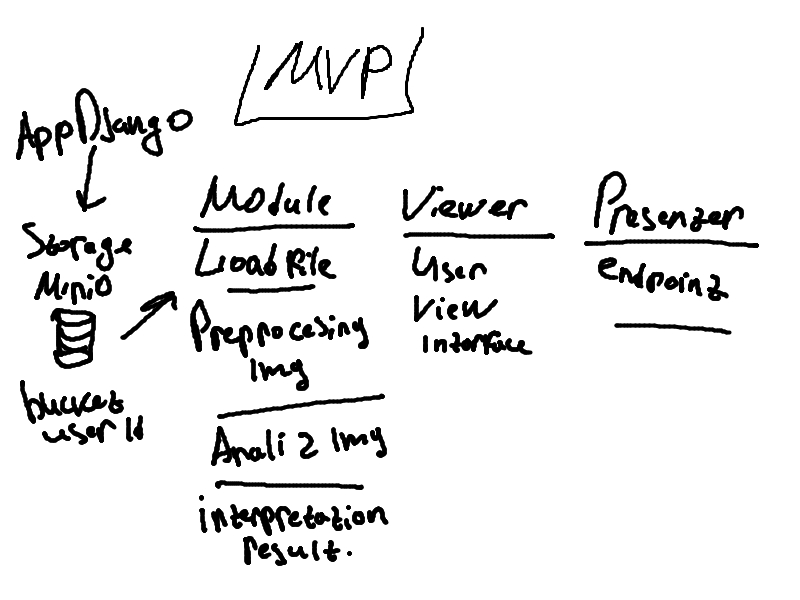 MVP
AppDjango
Storage
MiniO
bucket
user Id
Module
Load File
Preprocesing
img
Analiz img
interpretation
result.
Viewer
User
View
interface
Presenter
Endpoint